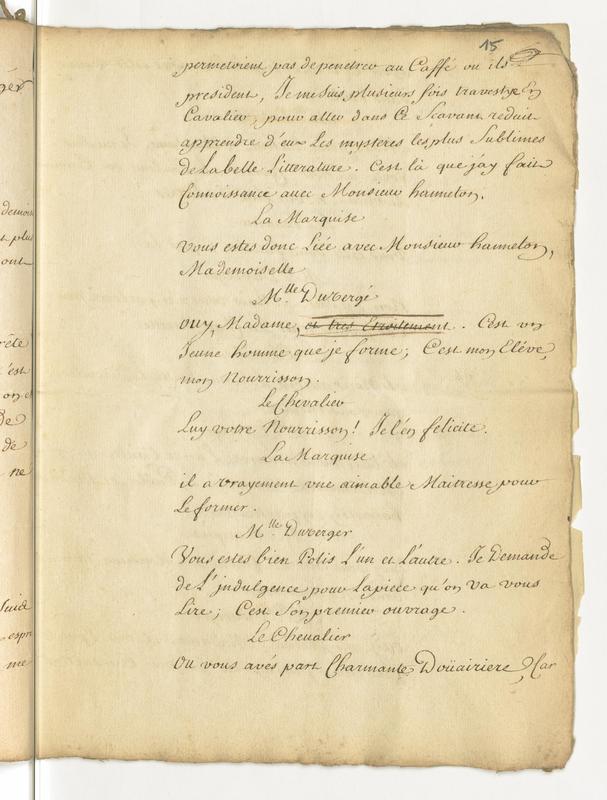 15
permetoient pas de penetrer au Caffé ou ils
president, Je me suis plusieurs fois travestye En
Cavalier, pour aller dans Ce Scavant reduit
apprendre d'eux Les mysteres les plus Sublimes
de La belle Litterature. C'est là que j'ay fait
Connoissance avec Monsieur hanneton.
La Marquise
vous estes donc Liée avec Monsieur hanneton,
Mademoiselle
Mlle Duvergé
ouy, Madame, et tres Etroitement. C'est un
Jeune homme que je forme; C'est mon Eléve,
mon Nourrisson.
Le Chevalier
Luy votre Nourrisson! Je l'en felicite.
La Marquise
il a vrayement une aimable Maitresse pour
Le former.
Mlle Duverger
Vous estes bien Polis L'un et L'autre. Je Demande
de L'jndulgence pour La piece qu'on va vous
Lire; C'est Son premier ouvrage.
Le Chevalier
Ou vous avés part Charmante Doüairiere, Car
ger
demois
t plus
ont
rête
c'est
on e
de
de
ne
Suid
espri
me